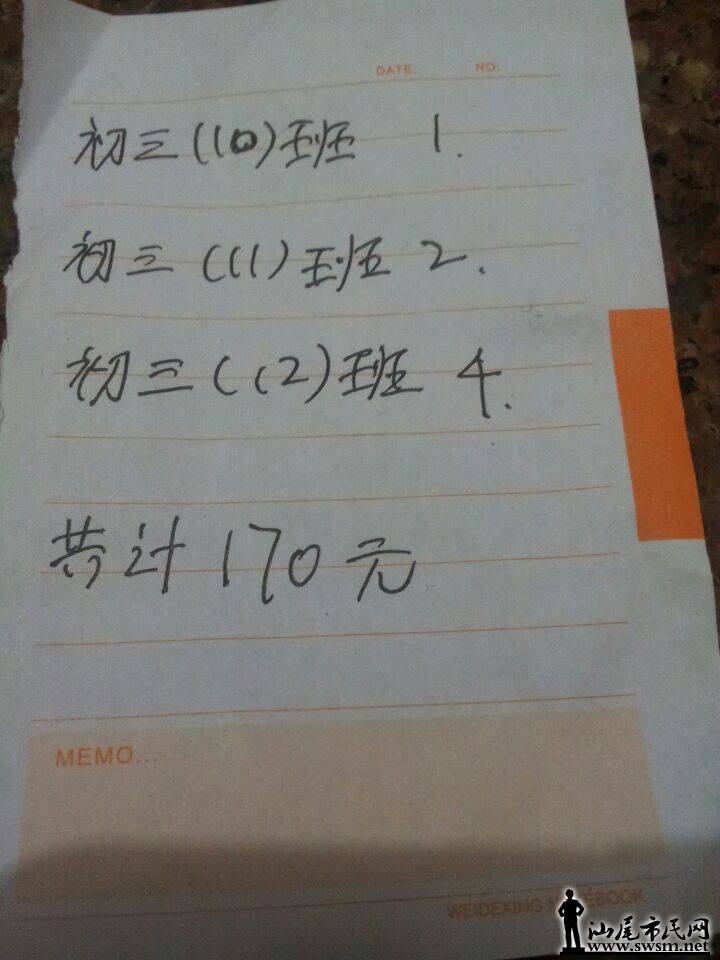 DATE: NO:
初三(10)班 1.
初三(11)班 2.
初三(12)班 4.
共计170元
MEMO...
WEIDEXING NOTEBOOK
汕尾市民网
www.swsm.net